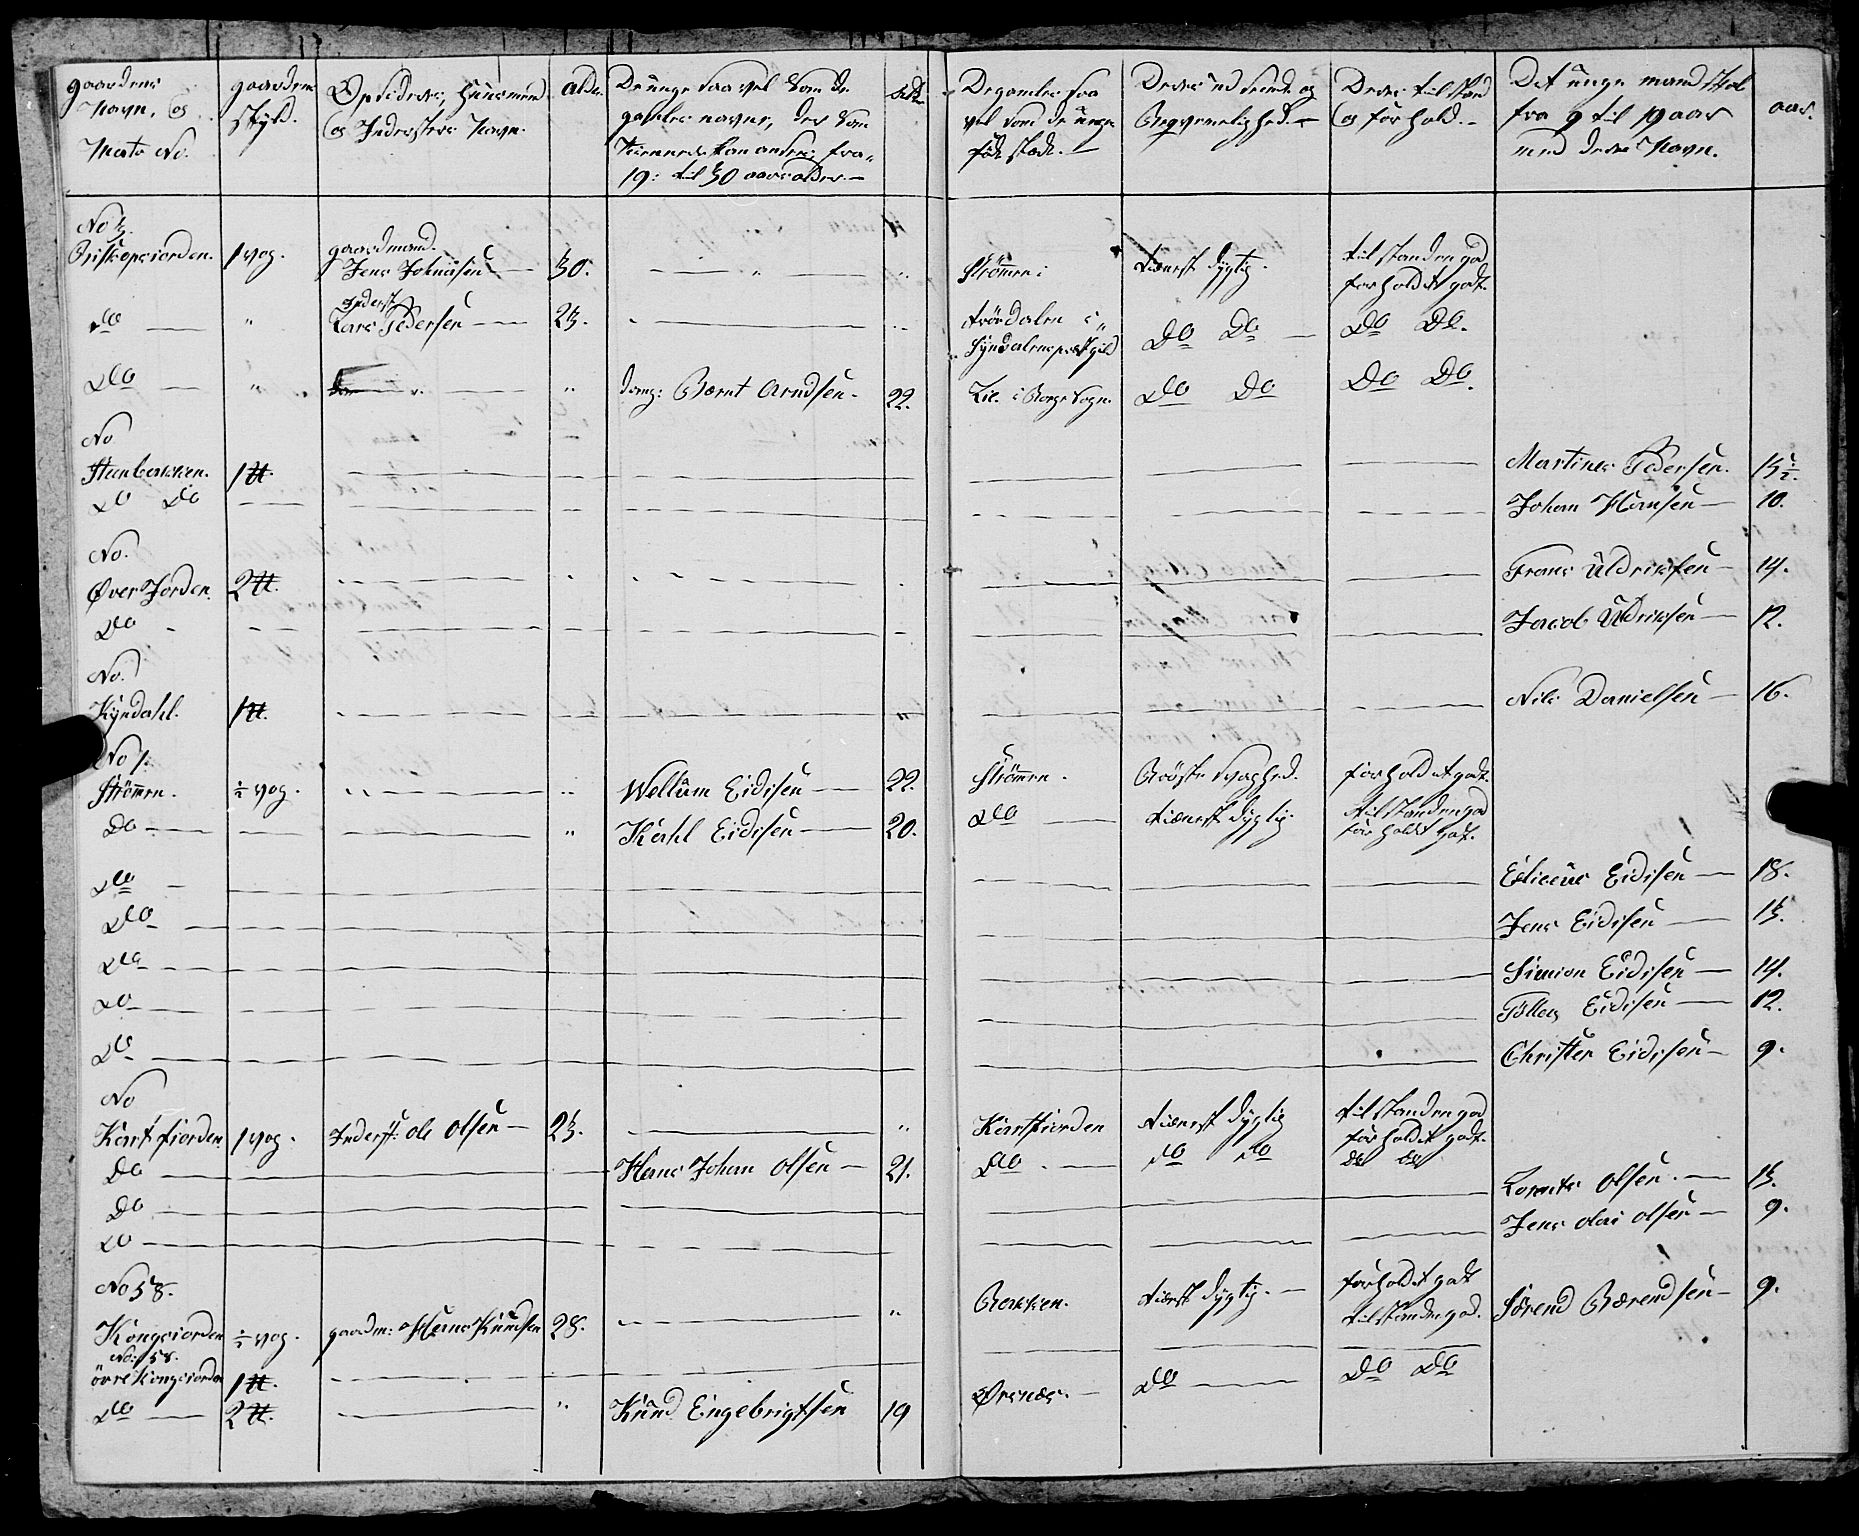 gaardens Navn, og Matr No. gaardens skyld. Opsidere, Huusmænd og Indersters Navn. alder De unge saa vel som de gamles navne, der som tienner kan andeer fra 19: til 50 aars alder.— De gamles saa vel som de unge føde stæd.— Deres udseende og Beqvemelighed.— Deres tilstand og forhold.— Det unge mandskab fra 9 til 19 aar med deres Navn. aar.
No 3.
Biskopsiorden. 1 vog. gaardmand. Jens Johnsen 30. Strømmen: tienest dygtig. tilstanden god forholdet godt.
Do Inderst Lars Pedersen 23. i Do Do Do Do.
Do dreng: Bernt Arndsen. 22. Lie. i Borge Sogn. Do Do Do Do.
No
Steenbakken. 1 Martinus Pedersen. 15 1/2.
Do Do Johan Hansen 10.
No.
Øver Jorden. 2 Frans Uldriksen 14.
Do Jacob Uldriksen 12.
No.
Kyndahl. 1 Nils Danielsen 16.
No 1.
Strømmen. 1/2 vog. Wellum Eidisen 22. Strømmen. Bryst svaghed. forholdet godt.
Do Kahl Eidisen 20. Do tienest dygtig. tilstanden god forholdet godt.
Do Eliseus Eidisen 18.
Do Jens Eidisen 15.
Do Simion Eidisen 14.
Do Tølleg Eidisen 12.
Do Christen Eidisen 9.
No
Kartfiorden 1 vog. Inderst: Ole Olsen 25. Kartfiorden tienest dygtig tilstanden god forholdet godt.
Do Hans Johan Olsen 21. Do Do Do Do Do
Do Lorents Olsen. 15.
Do Jens Olai Olsen 9.
No 58.
Kongsiorden 1/2 vog. gaardm: Hans Knudsen 28. Bakken. tienest dygtig. forholdet godt tilstanden god. Sørend Bærendsen 9.
No: 58.
øvre Kongsiorden 1
Do 2 Knud Engebrigtsen 19 Ørsnæs. Do Do Do